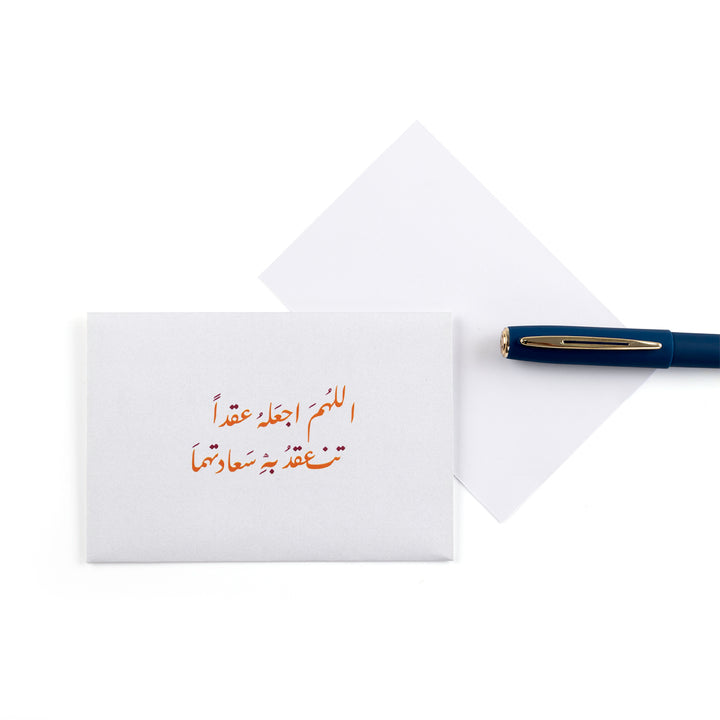 اللهُمَ اجعَلهُ عقداً
تنعقدُ بهِ سَعادتهمَا